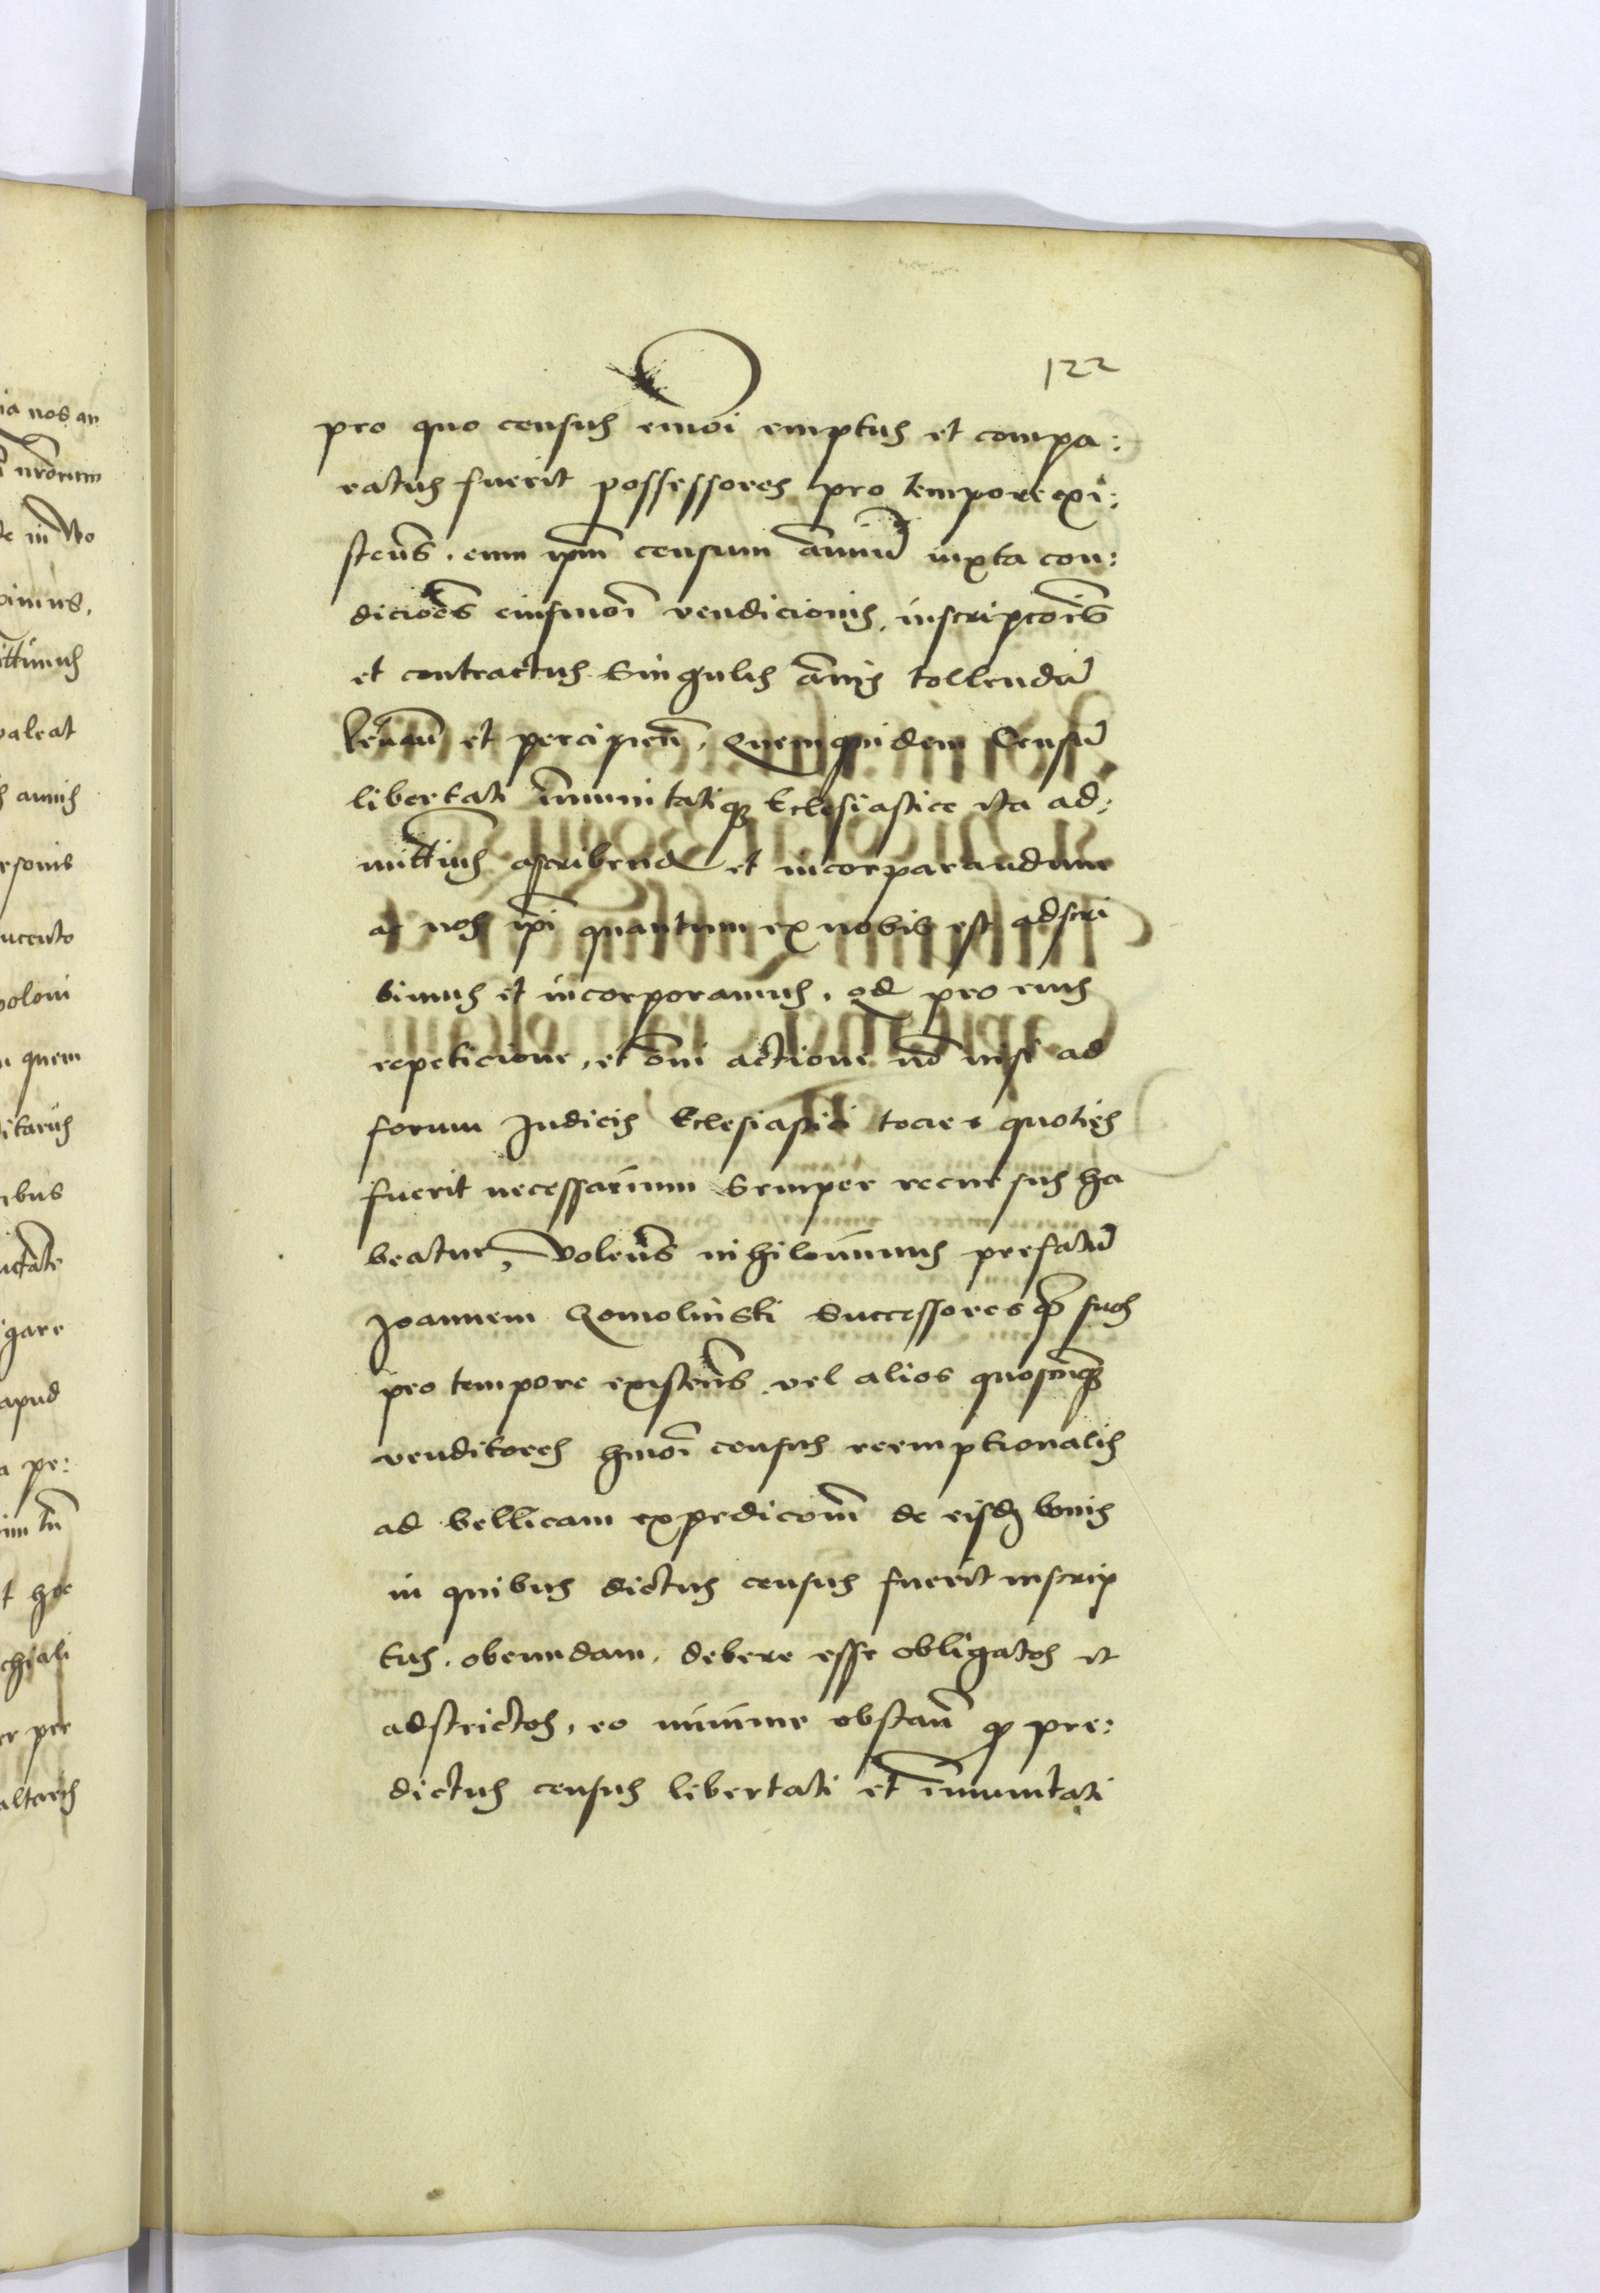 122
pro quo census eiuōi emptus et compa:
ratus fuerit possessores pro tempore exi:
steñs. eum ip̄m censum ānuū iuxta con:
dicioēs eiusmōi vendicionis, inscripcōis
et contractus singulis ānis tollendū
levañ et percipieñ. Quemquidem Censū
libertati īmunitatiqꝫ Eclesiastice ita ad:
mittimus ascribend et incorparandum
ac nos ip̄i quantum ex nobis est adscri
bimus et incorporamus. qd pro eius
repeticione, et om̄i actione nō nisi ad
forum Judicis Eclesiastici tocies quoties
fuerit necessarium semper recursus ha
beatur, Voleñs nihilominus prefatū
Joannem Zomolinski Successoresqꝫ suos
pro tempore existeñs vel alios quoscūqꝫ
venditores hmōi census reemptionalis
ad bellicam expedicōm̄ de eisdꝫ bonis
in quibus dictus census fuerit inscrip
tus. obeundam. debere esse obligatos et
adstrictos, eo minime obstañ qꝫ pre:
dictus census libertati et īmunitati
ia nos an
nr̄orum
de in Wo
ximus.
ittimus
valeat
annis
rsonis
ucento
poloni
quem
ditarus
ibus
gare
apud
a pe:
im tn̄
t hoc
chiali
er per
altaris